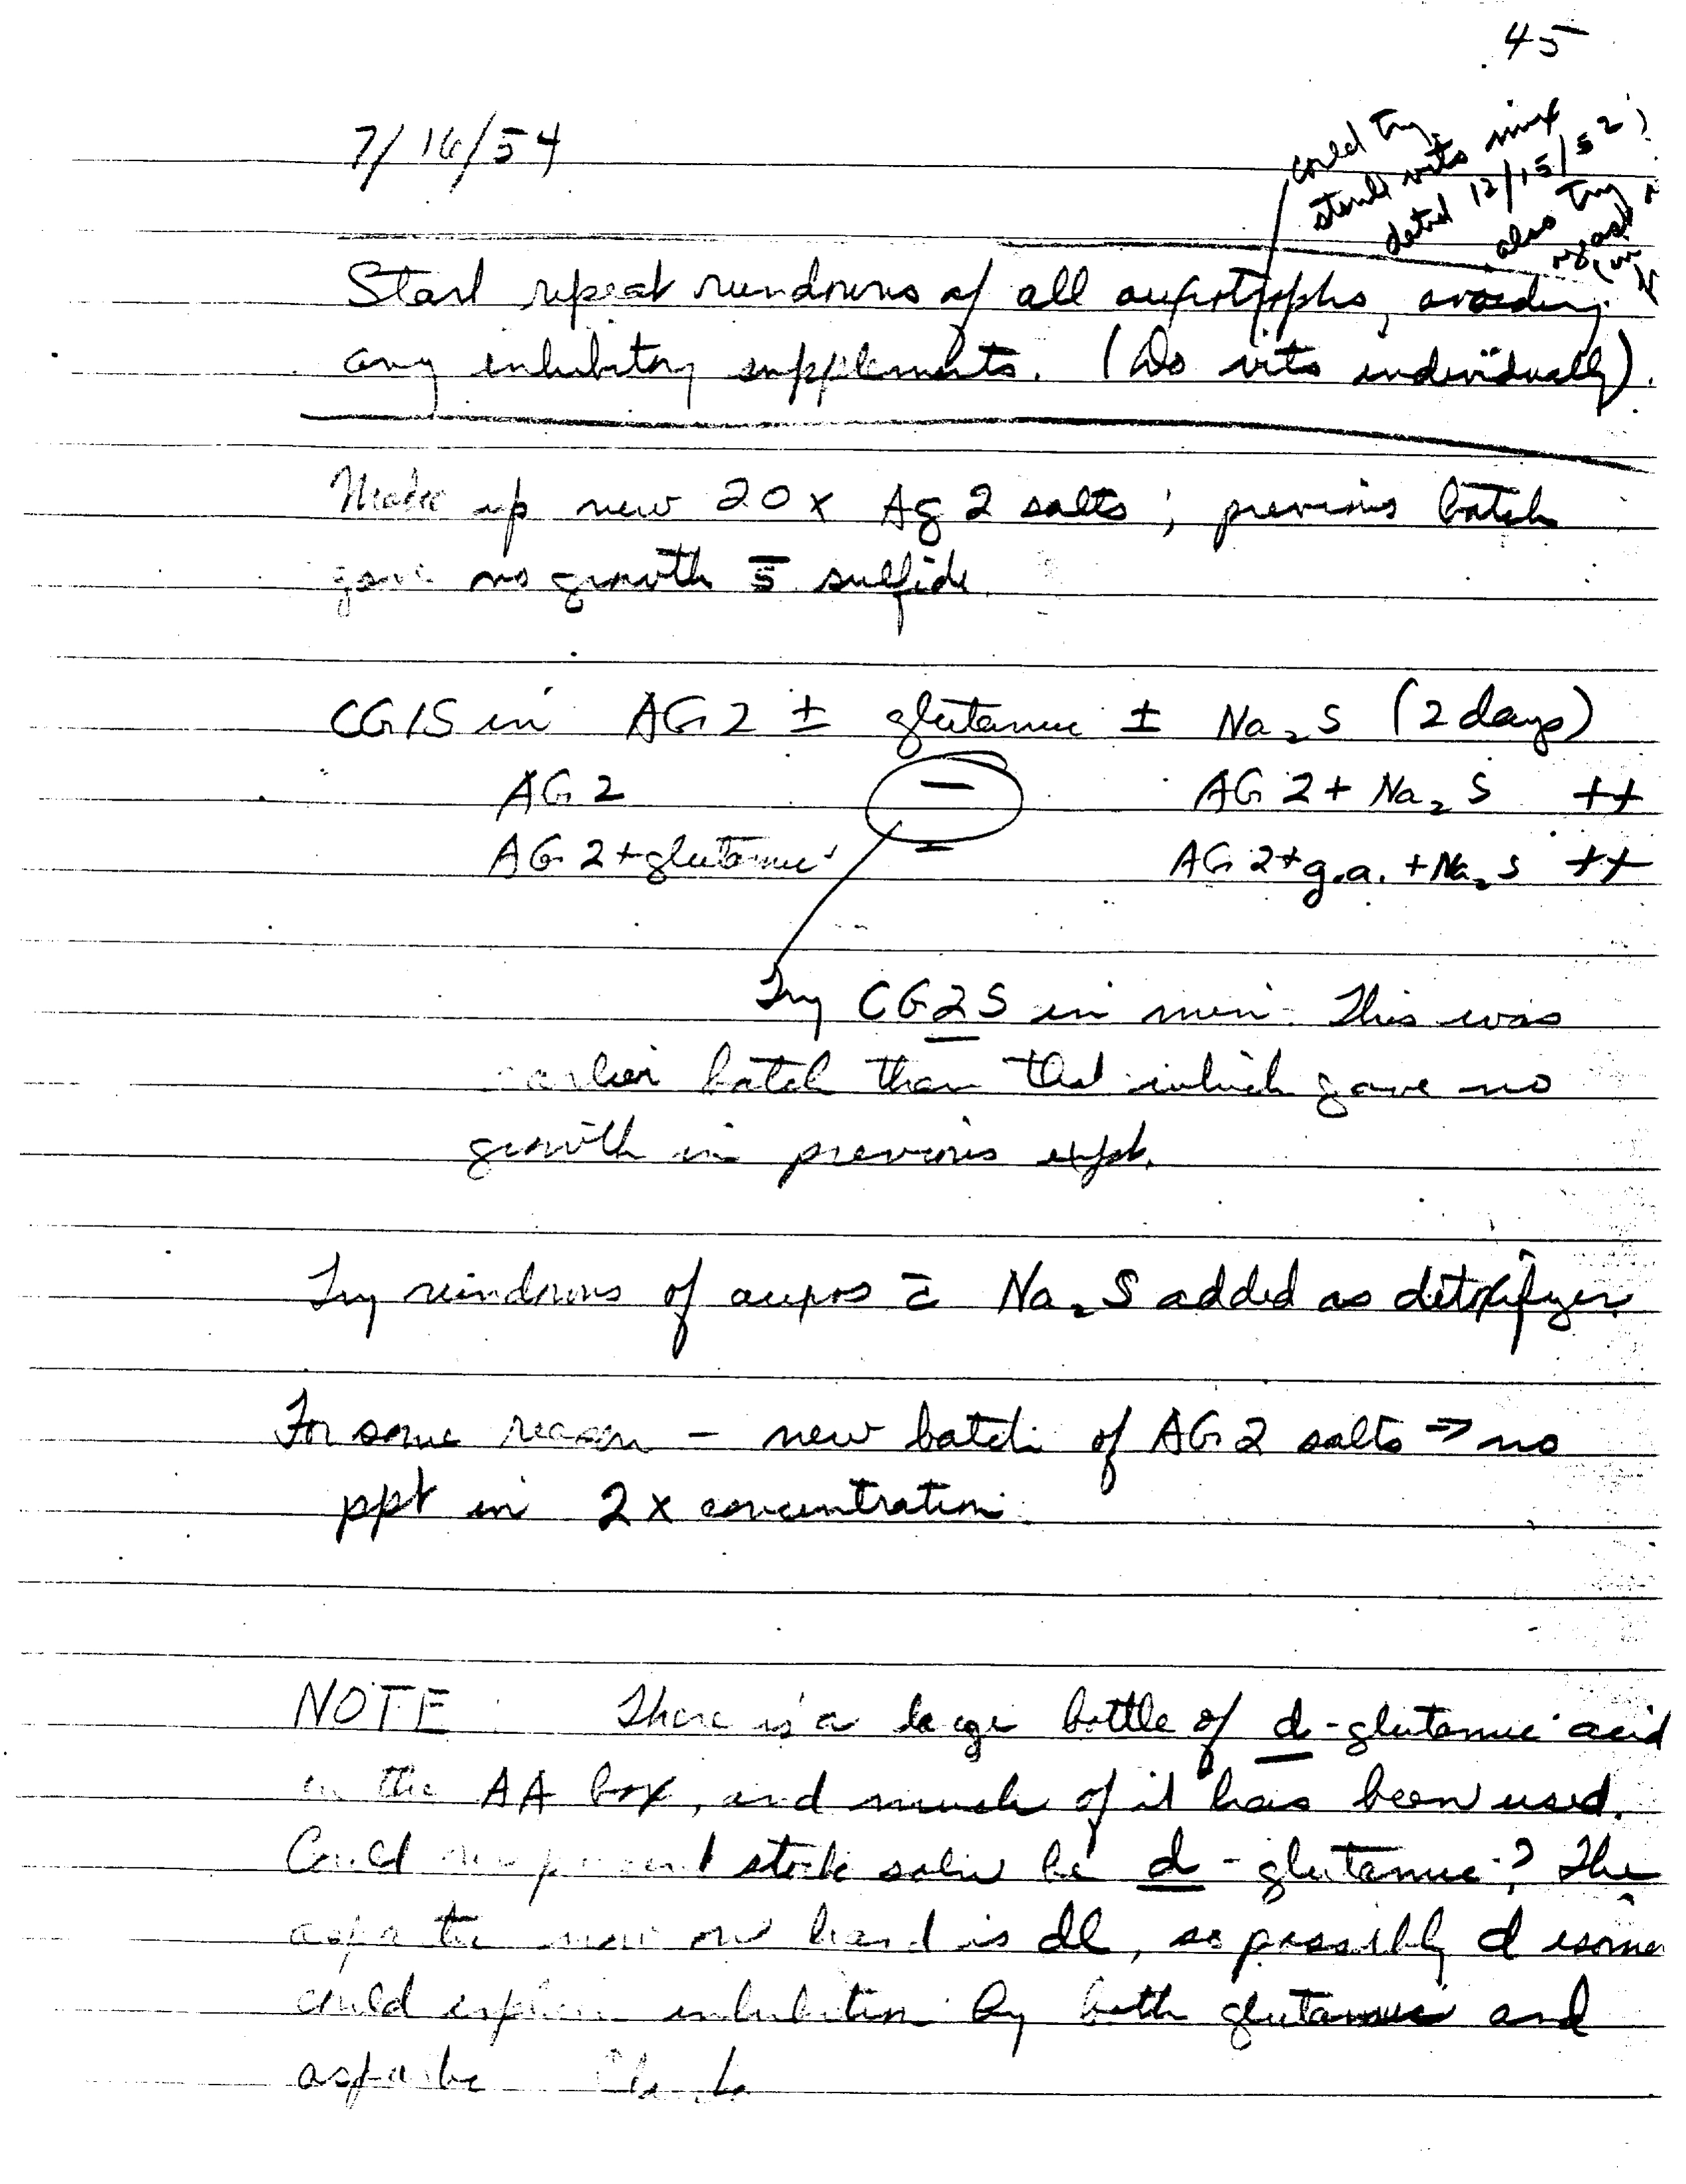 45
7/16/54
could try
sterile vits mix
dated 12/15/52;
also try
Start repeat rundowns of all auxotrophs, avoiding
any inhibitory supplements. (Do vits individually).
Made up new 20x Ag 2 salts; previous batch
gave no growth s̄ sulfide.
CG1S in AG2 ± glutamic ± Na₂S (2 days)
AG2 − AG2 + Na₂S ++
AG2 + glutamic − AG2 + g.a. + Na₂S ++
Try CG2S in min. This was
earlier batch than that which gave no
growth in previous expt.
Try rundowns of auxos c̄ Na₂S added as detoxifyer.
For some reason - new batch of AG2 salts → no
ppt in 2x concentration.
NOTE There is a large bottle of d-glutamic acid
in the AA box, and much of it has been used.
Could my present stock soln be d-glutamic? The
aspartic now on hand is dl, so possibly d isomer
could explain inhibition by both glutamic and
aspartic